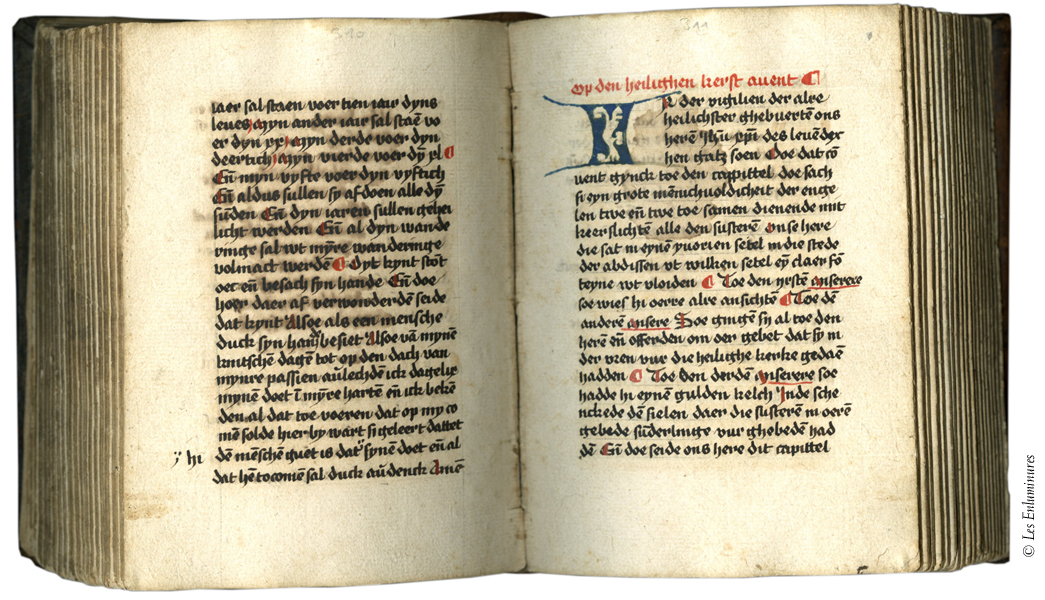 310
iaer sal staen voer tien iair dyns
leues myn ander iair sal staē vo
er dyn xx myn derde voer dyn
deertich myn vierde voer dȳ xl
Eñ myn vyfte voer dyn vyftich
Eñ aldus sullen sy af doen alle dȳ
sūden Eñ dyn iaren sullen gehei
licht werden Eñ al dyn wande
ringe sal wt mȳre wanderinge
volmact werdē Dyt kynt stōt
oec eñ besach syn hande Eñ doe
hoer daer af verwonderdē seide
dat kynt Alsoe als een mensche
duck syn hāde besiet Alsoe van mynē
kintschē dagē tot op den dach van
mynre passien aūlechdē ick dagelix
mynē doet ī mȳre hartē eñ ick bekē
den al dat toe voeren dat op my co
mē solde hier by wart si geleert dattet
y hi
dē mēschē guet is dat synē doet eñ al
dat hē tocomē sal duck aūdenck Amē
311
Op den heilighen kerst auent
IN der vigilien der alre
heilichster ghebuertē ons
herē ihū xp̄i des leuēder
hen gatz soen Doe dat cō
uent gynck toe den cappittel doe sach
si eyn grote mēnichuoldicheit der enge
len twe eñ twe toe samen dienende mit
keerslichtē alle den susterē onse here
die sat in eynē yuorien setel in die stede
der abdissen vt wilken setel eȳ claer fō
teyne wt vloiden Toe den yrstē miserere
soe wies hi oerre alre ansichtē Toe dē
anderē misere Soe gingē sy al toe den
herē eñ offerden om oer gebet dat sy in
der vren vur die heilighe kerke gedaē
hadden Toe den derdē miserere soe
hadde hi eynē gulden kelch Inde sche
nckede dē sielen daer die susterē in oerē
gebede sūderlinge vur ghebedē had
dē Eñ doe seide ons here dit capittel
© Les Enluminures